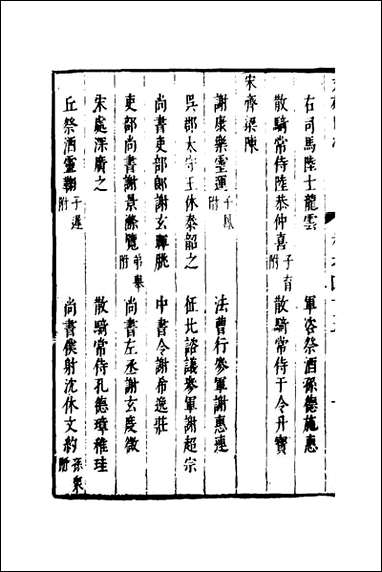 右司馬陸士龍雲 軍咨祭酒孫德施惠
散騎常侍陸恭仲喜子育附 散騎常侍干令升寶
宋齊梁陳
謝康樂靈運子鳳附 法曹行參軍謝惠連
吳郡太守王休泰韶之 征北諮議參軍謝超宗
尚書吏部郎謝玄暉朓 中書令謝希逸莊
吏部尚書謝景滌覽弟舉附 尚書左丞謝玄度微
宋處深廣之 散騎常侍孔德璋稚珪
丘祭酒靈鞠子遲附 尚書僕射沈休文約孫衆附